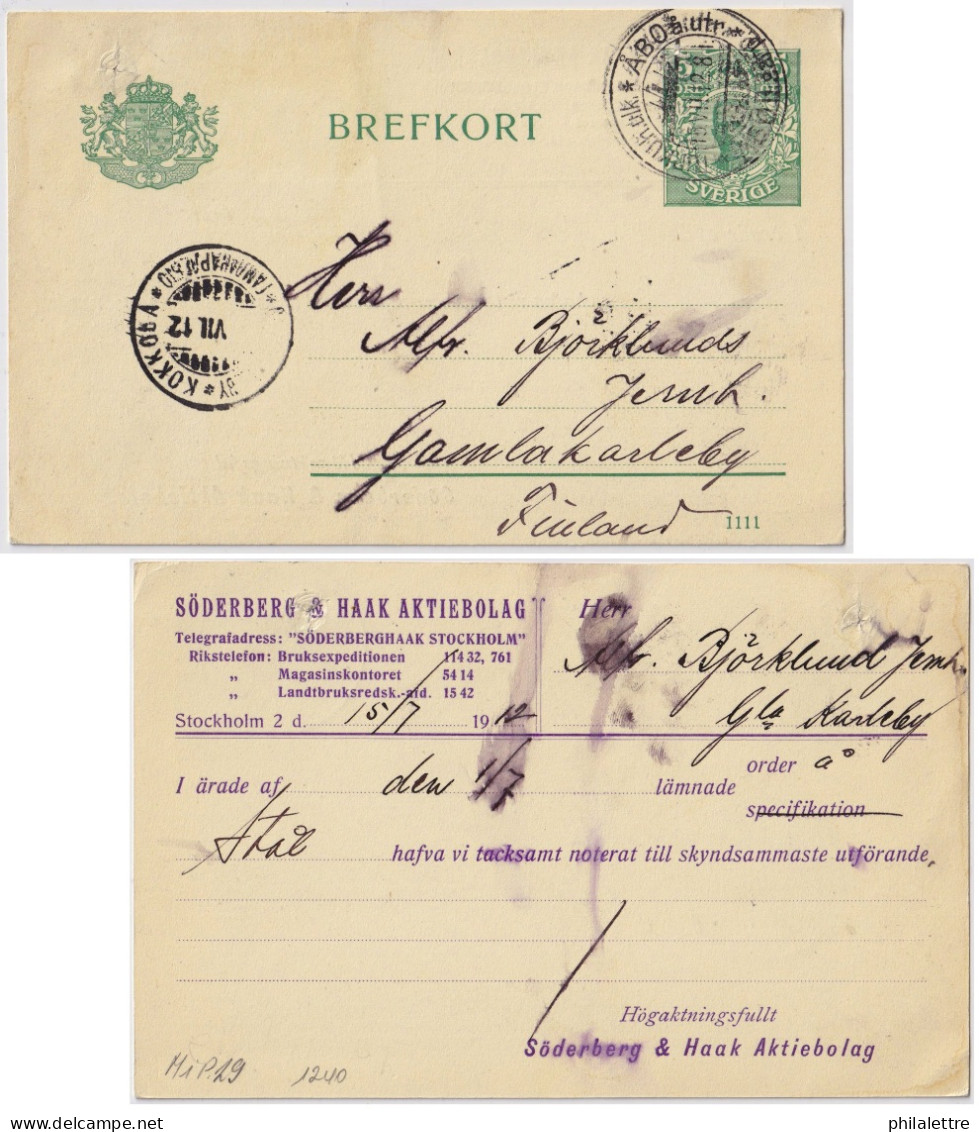 BREFKORT
SVERIGE
* ÅBO
KOKKOLA *
VII. 12
Herr
Alfr. Björklunds
Jernh.
Gamlakarleby
Finland
1111
SÖDERBERG & HAAK AKTIEBOLAG
Telegrafadress: "SÖDERBERGHAAK STOCKHOLM"
Rikstelefon: Bruksexpeditionen 114 32, 761
„ Magasinskontoret 54 14
„ Landtbruksredsk.-afd. 15 42
Stockholm 2 d. 15/7 1912
Herr
Alfr. Björklund Jernh.
Gla Karleby
I ärade af den 1/7 lämnade order å
specifikation
Stål hafva vi tacksamt noterat till skyndsammaste utförande,
Högaktningsfullt
Söderberg & Haak Aktiebolag
MiP.29 1240
philalettre